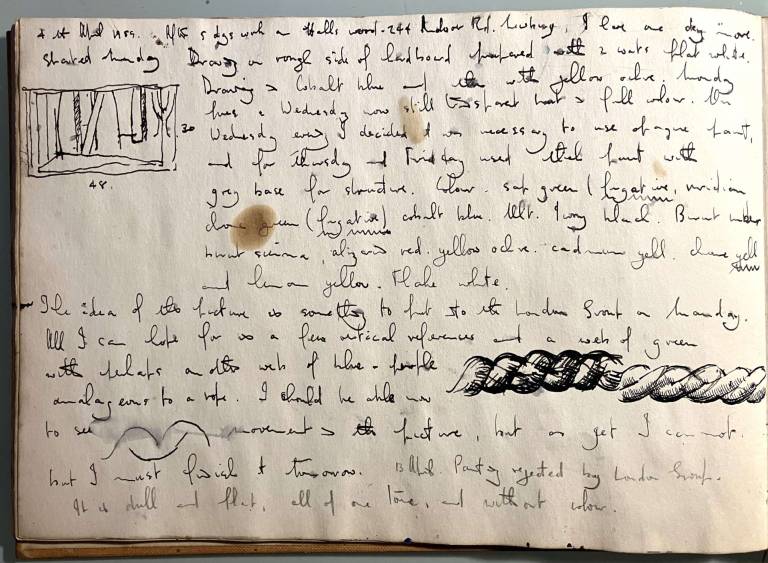 days work on Halls wood - 244 Rd. I have one day more.
started Monday Drawing on rough side of hardboard prepared with 2 coats flat white.
Drawing in Cobalt blue and with yellow ochre. Monday
Wednesday now still transparent but in full colour. On
Wednesday eveng I decided it was necessary to use opaque paint,
and for thursday and Friday used thick paint with
30
48.
grey base for structure. Colour. sap green (fugative, viridian
chrome green (fugative) cobalt blue. Ult. Ivory black. Burnt umber
burnt sienna, alizarin red. yellow ochre. cadmium yell. chrome yell
and lemon yellow. Flake white.
The idea of this picture is something to put to the London Group on Monday.
All I can hope for is a few vertical references and a web of green
with perhaps another web of blue-purple
analageous to a rope. I should be able now
to see movement in the picture, but as yet I cannot.
but I must finish it tomorrow. Painting rejected by London Group.
It is dull and flat, all of one tone, and without colour.